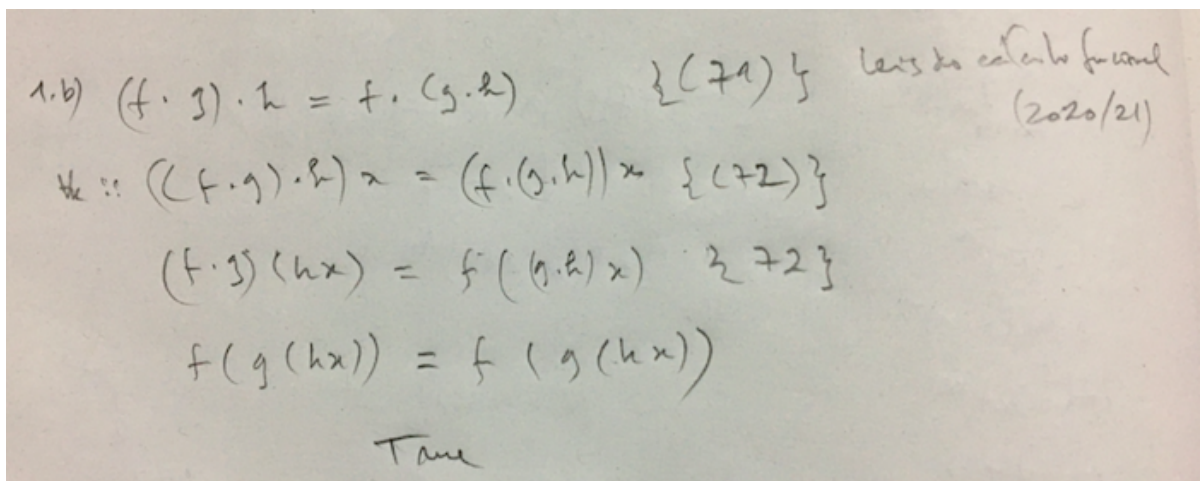 1.b) (f · g) · h = f · (g·h) {(71)} Leis do cálculo funcional
(2020/21)
:: ((f·g)·h) x = (f·(g·h)) x {(72)}
(f·g)(hx) = f((g·h)x) {72}
f(g(hx)) = f(g(hx))
True